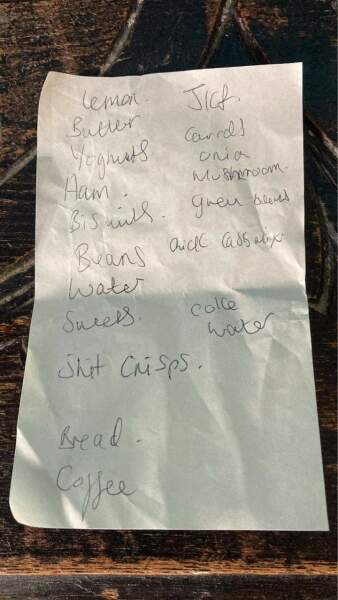 Lemon.
Butter
Yoghurts
Ham.
Biscuits.
Beans
Water
Sweets.
Shit Crisps.
Bread.
Coffee
Carrots
onion
Mushroom.
green beans
chick
water